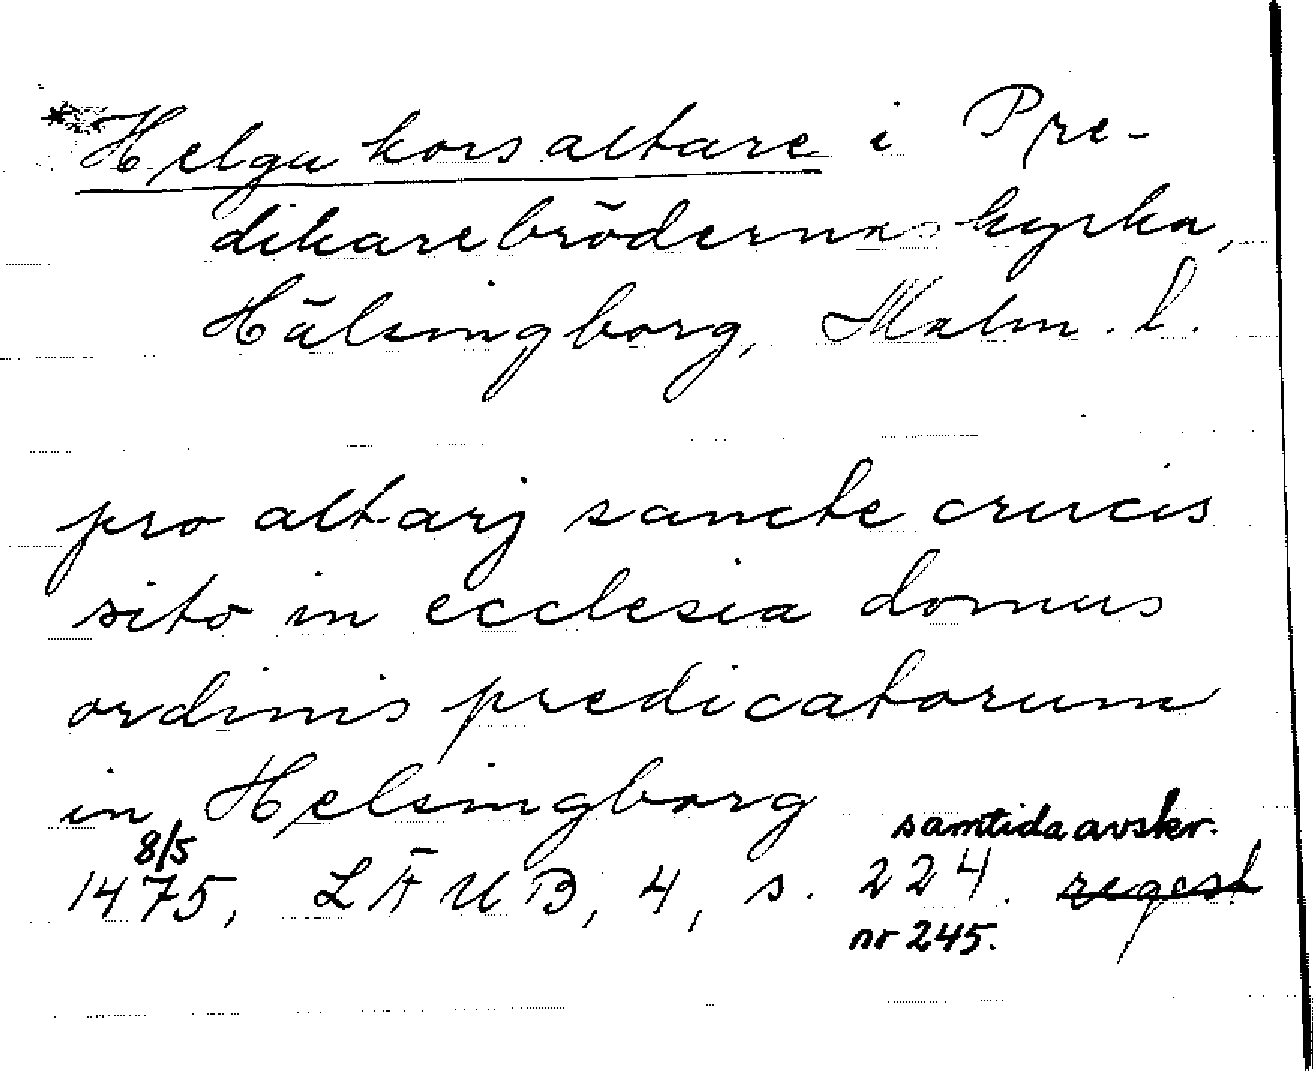 *Helga kors altare i Pre-
dikarebrödernas kyrka,
Hälsingborg, Malm. l.
pro altarj sancte crucis
sito in ecclesia domus
ordinis predicatorum
in Helsingborg
samtida avskr.
8/5
1475, LÄUB, 4, s. 224. regest
nr 245.